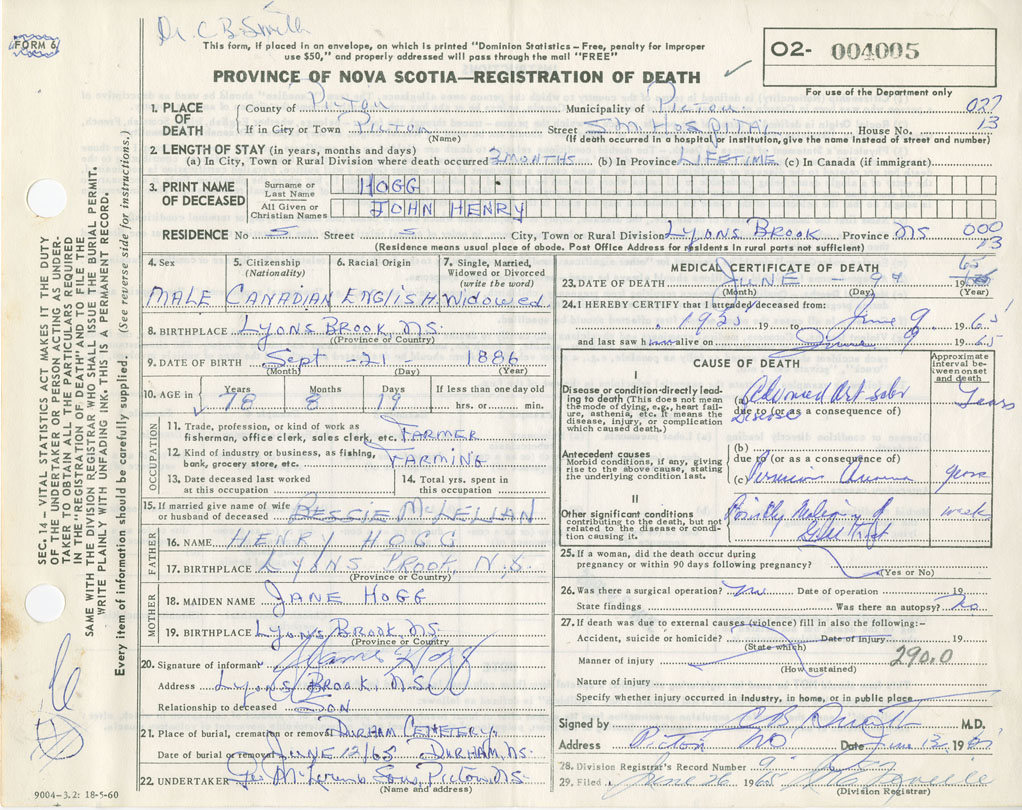 Dr. C B Smith
FORM 6
This form, if placed in an envelope, on which is printed "Dominion Statistics – Free, penalty for improper
use $50," and properly addressed will pass through the mail "FREE"
O2- 004005
PROVINCE OF NOVA SCOTIA—REGISTRATION OF DEATH
For use of the Department only
1. PLACE OF DEATH County of PICTOU Municipality of PICTOU 027
If in City or Town PICTOU Street S.M. HOSPITAL House No. 13
(Name) (If death occurred in a hospital or institution, give the name instead of street and number)
2. LENGTH OF STAY (in years, months and days)
(a) In City, Town or Rural Division where death occurred 3 MONTHS (b) In Province LIFETIME (c) In Canada (if immigrant)
3. PRINT NAME OF DECEASED Surname or Last Name HOGG
All Given or Christian Names JOHN HENRY
RESIDENCE No S Street S City, Town or Rural Division LYONS BROOK Province NS 000
(Residence means usual place of abode. Post Office Address for residents in rural parts not sufficient) 13
4. Sex 5. Citizenship (Nationality) 6. Racial Origin 7. Single, Married, Widowed or Divorced (write the word)
MALE CANADIAN ENGLISH Widowed
8. BIRTHPLACE LYONS BROOK, NS.
(Province or Country)
9. DATE OF BIRTH Sept -21 1886
(Month) (Day) (Year)
10. AGE in Years Months Days If less than one day old
78 8 19 hrs. or min.
OCCUPATION
11. Trade, profession, or kind of work as
fisherman, office clerk, sales clerk, etc. FARMER
12. Kind of industry or business, as fishing,
bank, grocery store, etc. FARMING
13. Date deceased last worked at this occupation 14. Total yrs. spent in this occupation
15. If married give name of wife
or husband of deceased BESSIE McLELLAN
FATHER
16. NAME HENRY HOGG
17. BIRTHPLACE LYONS BROOK N.S.
(Province or Country)
MOTHER
18. MAIDEN NAME JANE HOGG
19. BIRTHPLACE LYONS BROOK, NS.
(Province or Country)
20. Signature of informant Hogg
Address LYONS BROOK, N.S.
Relationship to deceased SON
21. Place of burial, cremation or removal DURHAM CEMETERY,
Date of burial or removal JUNE 12/65 DURHAM, NS.
22. UNDERTAKER Son, Pictou NS
(Name and address)
9004–3.2: 18-5-60
MEDICAL CERTIFICATE OF DEATH
23. DATE OF DEATH JUNE - 9th 1965
(Month) (Day) (Year)
24. I HEREBY CERTIFY that I attended deceased from:
19 to June 9 1965
and last saw him alive on June 9 1965
CAUSE OF DEATH
Approximate interval between onset and death
I
Disease or condition directly leading to death (This does not mean the mode of dying, e.g., heart failure, asthenia, etc. It means the disease, injury, or complication which caused death.)
(a) Advanced Disease Years
due to (or as a consequence of)
Antecedent causes
Morbid conditions, if any, giving rise to the above cause, stating the underlying condition last.
(b)
due to (or as a consequence of)
(c) Pernicious Anaemia years
II
Other significant conditions
contributing to the death, but not related to the disease or condition causing it.
Possibly of weeks
25. If a woman, did the death occur during
pregnancy or within 90 days following pregnancy?
(Yes or No)
26. Was there a surgical operation? no Date of operation 19
State findings Was there an autopsy? No
27. If death was due to external causes (violence) fill in also the following:–
Accident, suicide or homicide? Date of injury 19
(State which)
Manner of injury 290.0
(How sustained)
Nature of injury
Specify whether injury occurred in industry, in home, or in public place
Signed by C B M.D.
Address Pictou NS Date June 1965
28. Division Registrar's Record Number 9
29. Filed June 26 1965
(Division Registrar)
SEC. 14 – VITAL STATISTICS ACT MAKES IT THE DUTY
OF THE UNDERTAKER OR PERSON ACTING AS UNDER-
TAKER TO OBTAIN ALL THE PARTICULARS REQUIRED
IN THE "REGISTRATION OF DEATH" AND TO FILE THE
SAME WITH THE DIVISION REGISTRAR WHO SHALL ISSUE THE BURIAL PERMIT.
WRITE PLAINLY WITH UNFADING INK. THIS IS A PERMANENT RECORD.
Every item of information should be carefully supplied. (See reverse side for instructions.)